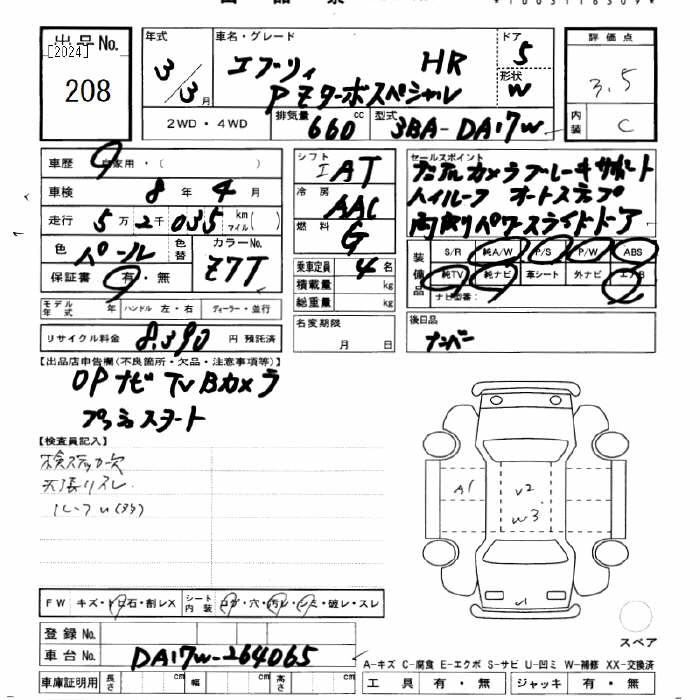 出品No.
[2024]
208
年式
3/3月
車名・グレード
エブリィ HR
PZターボスペシャル
ドア
5
形状
W
評価点
3.5
内装
C
2WD・4WD
排気量 660 cc
型式 3BA-DA17W
車歴 自家用・( )
車検 8年4月
走行 5万2千035 km マイル( )
色 パール
色替
カラーNo. Z7T
保証書 有・無
シフト
I AT
冷房
AAC
燃料
G
乗車定員 4 名
積載量 kg
総重量 kg
セールスポイント
デュアルカメラブレーキサポート
ハイルーフ オートステップ
両側パワースライドドア
装備品
S/R 純A/W P/S P/W ABS
純TV 純ナビ 革シート 外ナビ エアB
ナビ型番:
モデル年式 年 ハンドル 左・右 ディーラー・並行
リサイクル料金 8,390 円 預託済
名変期限
月 日
後日品
ナンバー
【出品店申告欄(不良箇所・欠品・注意事項等)】
OPナビ TV Bカメラ
プッシュスタート
【検査員記入】
検ステッカー欠
天張リスレ
A1
V2
W3
FW キズ・トビ石・割レX
シート内装 コゲ・穴・汚レ・シミ・破レ・スレ
登録No.
車台No. DA17W-264065
車庫証明用 長さ cm 幅 cm 高さ cm
スペア
A-キズ C-腐食 E-エクボ S-サビ U-凹ミ W-補修 XX-交換済
工具 有・無 ジャッキ 有・無